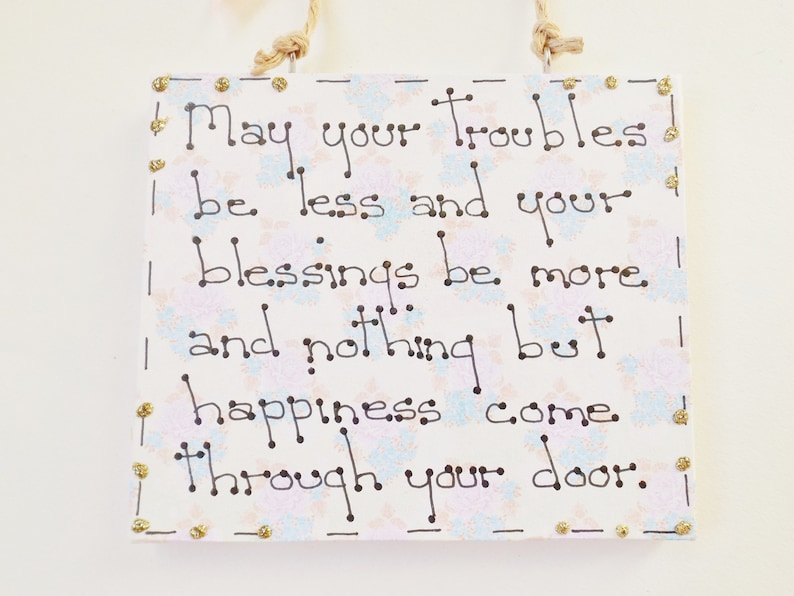 May your troubles
be less and your
blessings be more
and nothing but
happiness come
through your door.